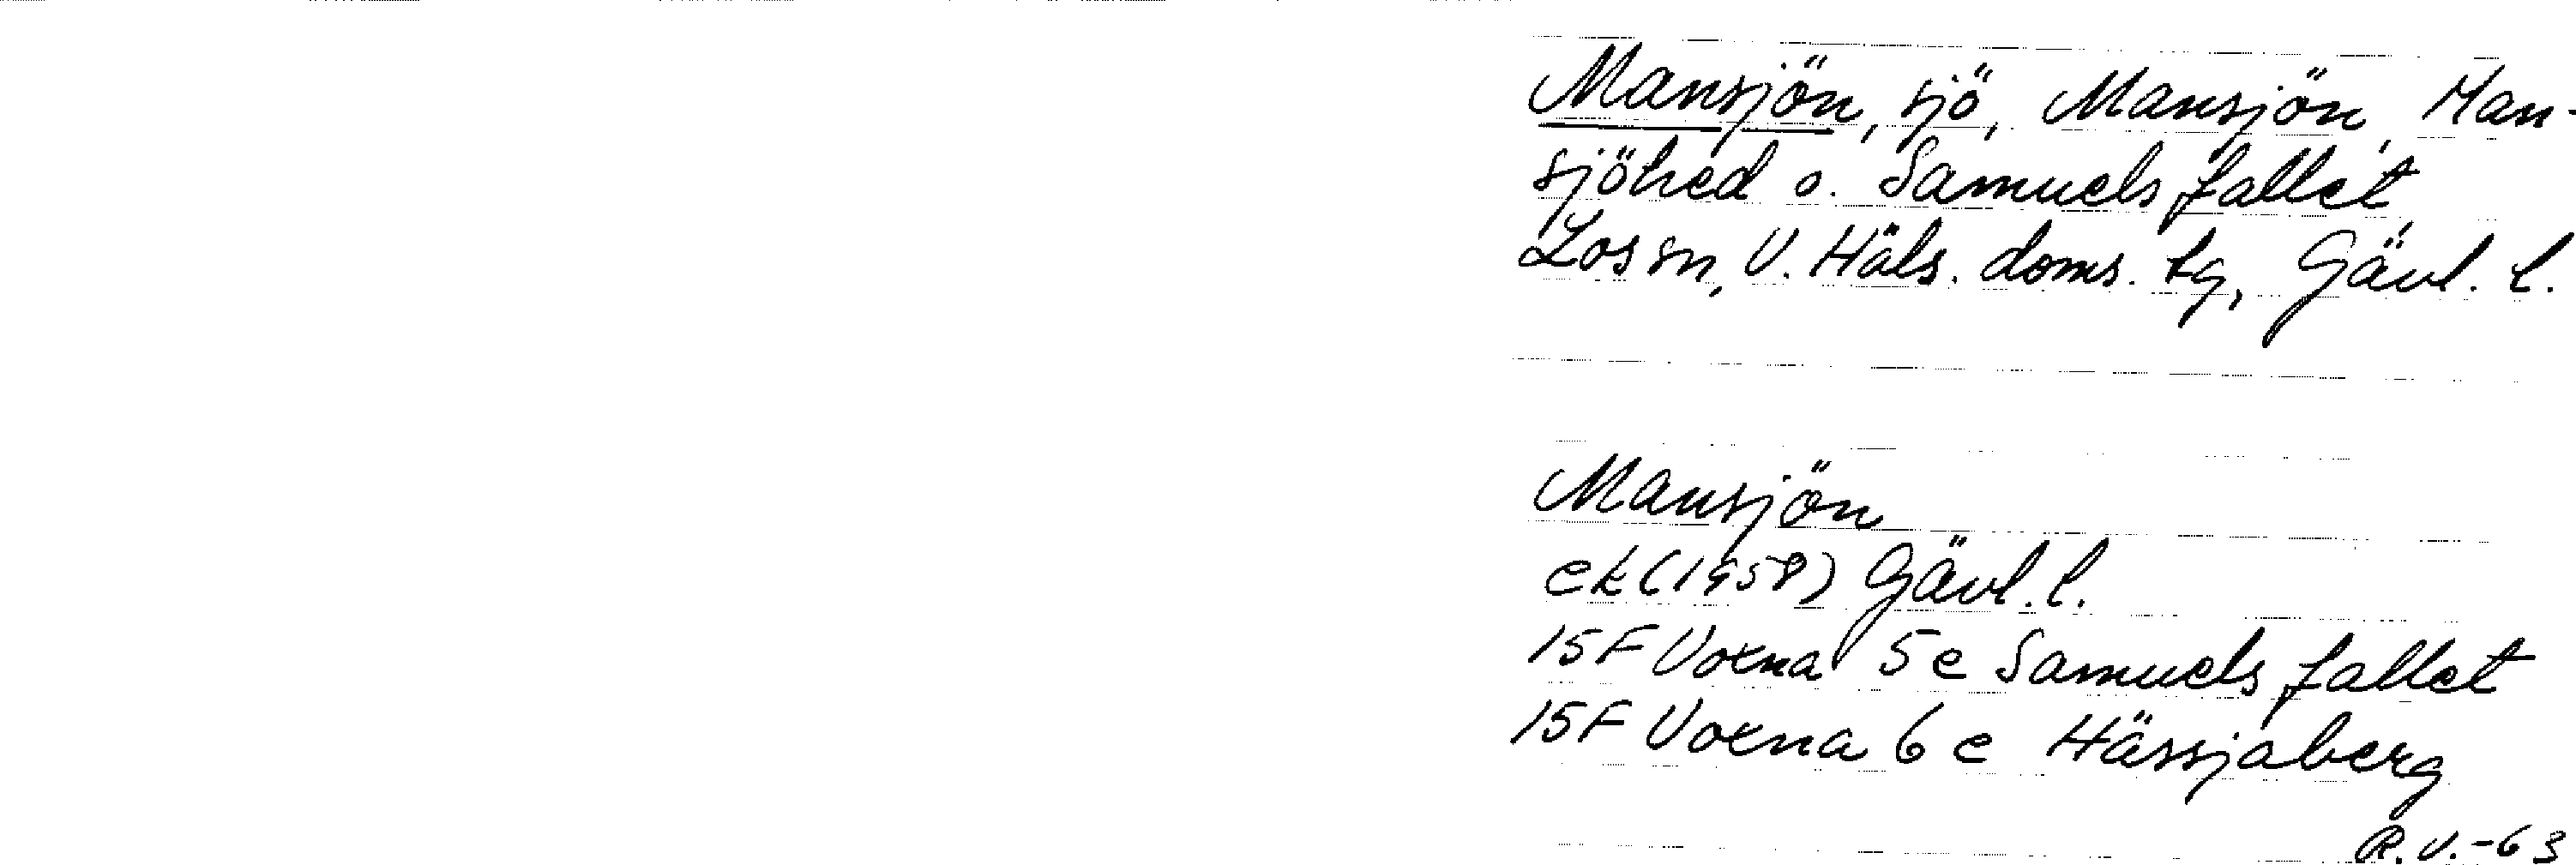 Mansjön, sjö, Mansjön, Man-
sjöhed o. Samuelsfallet,
Los sn, V. Häls. doms. tg, Gävl. l.
Mansjön
ek (1958) Gävl. l.
15F Voxna 5e Samuelsfallet
15F Voxna 6e Hässjaberg
R.V.-63